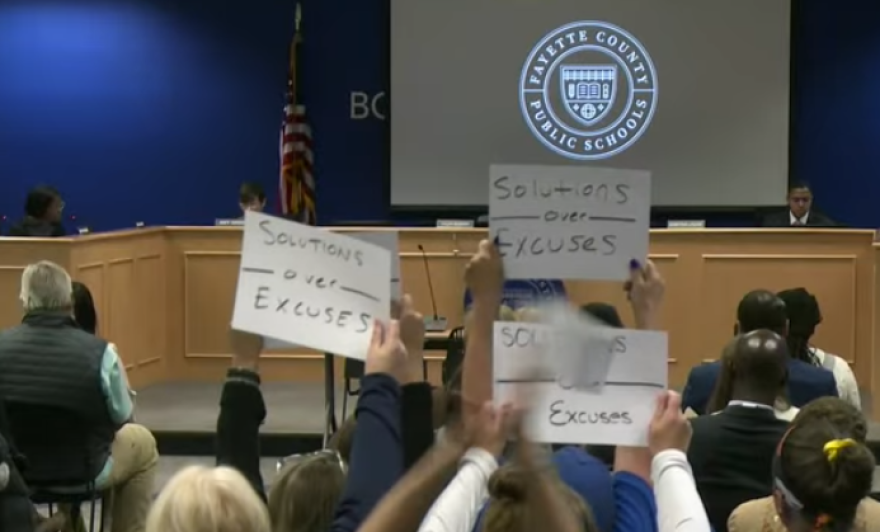 FAYETTE COUNTY
PUBLIC SCHOOLS
BO
Solutions
over
Excuses
SOLUTIONS
over
EXCUSES
Excuses